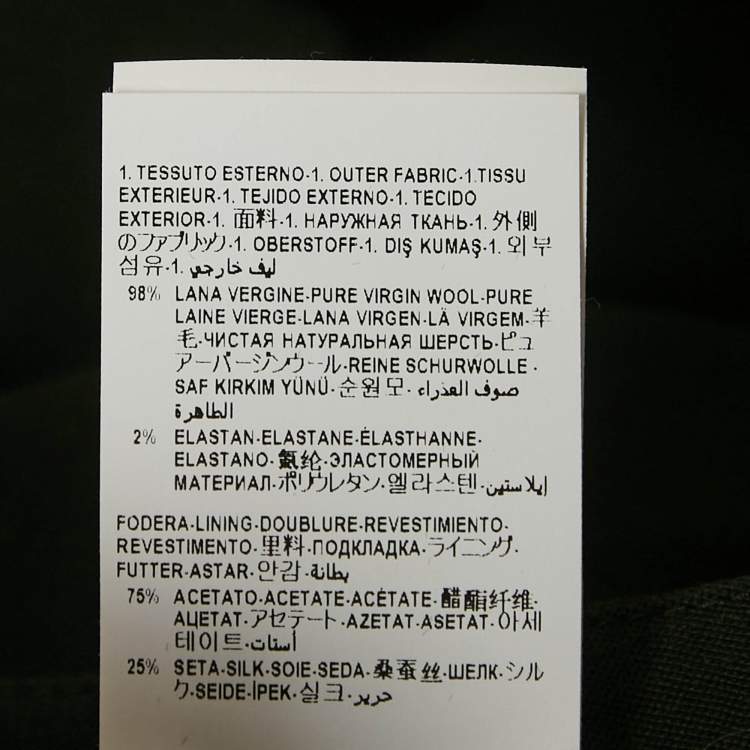 1. TESSUTO ESTERNO-1. OUTER FABRIC-1.TISSU
EXTERIEUR-1. TEJIDO EXTERNO-1. TECIDO
EXTERIOR-1. 面料-1. НАРУЖНАЯ ТКАНЬ-1. 外側
のファブリック-1. OBERSTOFF-1. DIŞ KUMAŞ-1. 외부
섬유-1. ليف خارجي
98% LANA VERGINE-PURE VIRGIN WOOL-PURE
LAINE VIERGE-LANA VIRGEN-LÃ VIRGEM-羊
毛-ЧИСТАЯ НАТУРАЛЬНАЯ ШЕРСТЬ-ピュ
アーバージンウール-REINE SCHURWOLLE-
SAF KIRKIM YÜNÜ-순원모-صوف العذراء
الطاهرة
2% ELASTAN-ELASTANE-ÉLASTHANNE-
ELASTANO-氨纶-ЭЛАСТОМЕРНЫЙ
МАТЕРИАЛ-ポリウレタン-엘라스텐-إيلاستين
FODERA-LINING-DOUBLURE-REVESTIMIENTO-
REVESTIMENTO-里料-ПОДКЛАДКА-ライニング-
FUTTER-ASTAR-안감-بطانة
75% ACETATO-ACETATE-ACÉTATE-醋酯纤维-
АЦЕТАТ-アセテート-AZETAT-ASETAT-아세
테이트-أستات
25% SETA-SILK-SOIE-SEDA-桑蚕丝-ШЕЛК-シル
ク-SEIDE-İPEK-실크-حرير